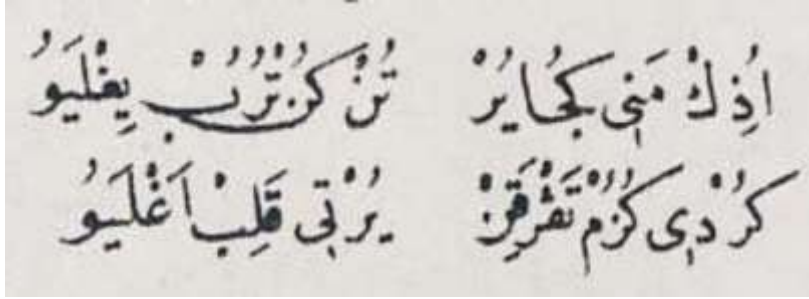 اُذِكْ مَنِى كُجَا يُرْ تُنْ كُنْ تُرُبْ يِغْلَيُو
كُرْدِى كُزُمْ تَفْرَقِنْ يُرْتِى قَلِبْ اَغْلَيُو